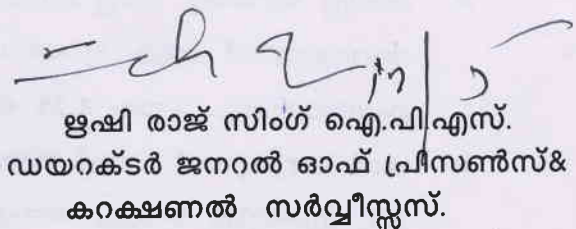 ഋഷി രാജ് സിംഗ് ഐ.പി.എസ്.
ഡയറക്ടർ ജനറൽ ഓഫ് പ്രിസൺസ്&
കറക്ഷണൽ സർവ്വീസ്സസ്.